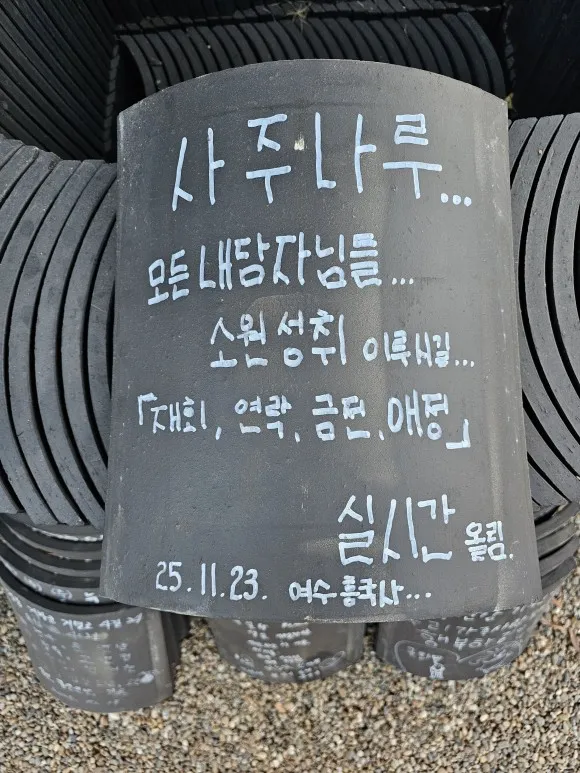 사주나루...
모든 내담자님들...
소원성취 이루시길...
「재회, 연락, 금전, 애정」
실시간 올림.
25.11.23. 여수 흥국사...